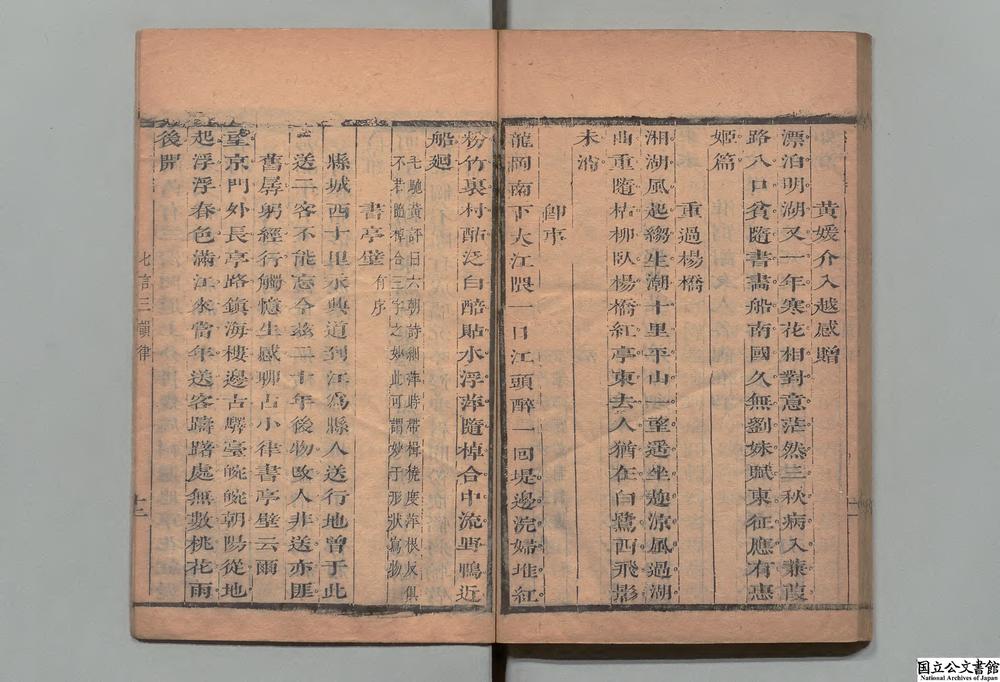 黃媛介入越感贈
漂泊明湖又一年寒花相對意茫然三秋病入蒹葭
路八口貧隨書畵船南國久無劉妹賦東征應有惠
姬篇
重過楊橋
湘湖風起縐生潮十里平山一望遥坐趂涼風過湖
曲重隨枯柳臥楊橋紅亭東去人猶在白鷺西飛影
未消
卽事
龍岡南下大江隈一日江頭醉一回堤邊浣婦堆紅
粉竹裏村酤泛白醅貼水浮萍隨棹合中流野鴨近
船廻
毛馳黃評曰六朝詩細萍時帶楫橈度萍根反俱
不若隨棹合三字之妙此可謂妙于形狀寫物
書亭壁有序
縣城西十里永興道到江爲縣人送行地曾于此
送二客不能忘今兹二十年後物改人非送亦匪
舊孱躬經行觸憶生感聊占小律書亭壁云爾
望京門外長亭路鎮海樓邊古驛臺皖皖朝陽從地
起浮浮春色滿江來當年送客躊躇處無數桃花雨
後開
七言三韻律
十二
国立公文書館
National Archives of Japan